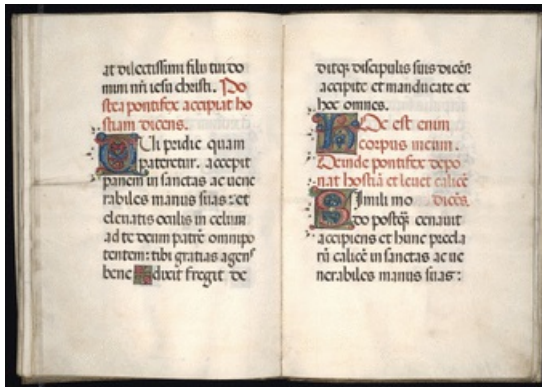 at dilectissimi filii tui do
mini nr̄i iesu christi. Po
stea pontifex accipiat ho
stiam dicens.
Qui pridie quam
pateretur. accepit
panem in sanctas ac uene
rabiles manus suas: et
eleuatis oculis in celum
ad te deum patrē omnipo
tentem: tibi gratias agens
bene ✠ dixit fregit de
ditq; discipulis suis dicēs
accipite et manducate ex
hoc omnes.
Hoc est enim
corpus meum.
Deinde pontifex depo
nat hostiā et leuet calicē
dicēs.
Simili mo
do postq̄ cenauit
accipiens et hunc precla
rū calicē in sanctas ac ue
nerabiles manus suas: